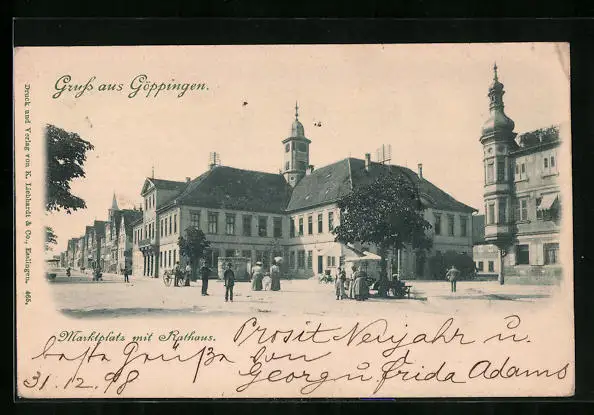 Gruß aus Göppingen.
Druck und Verlag von K. Liebhardt & Co., Esslingen. 465.
Marktplatz mit Rathaus.
Prosit Neujahr u.
beste Grüße von
Georg u Frida Adams
31.12.98